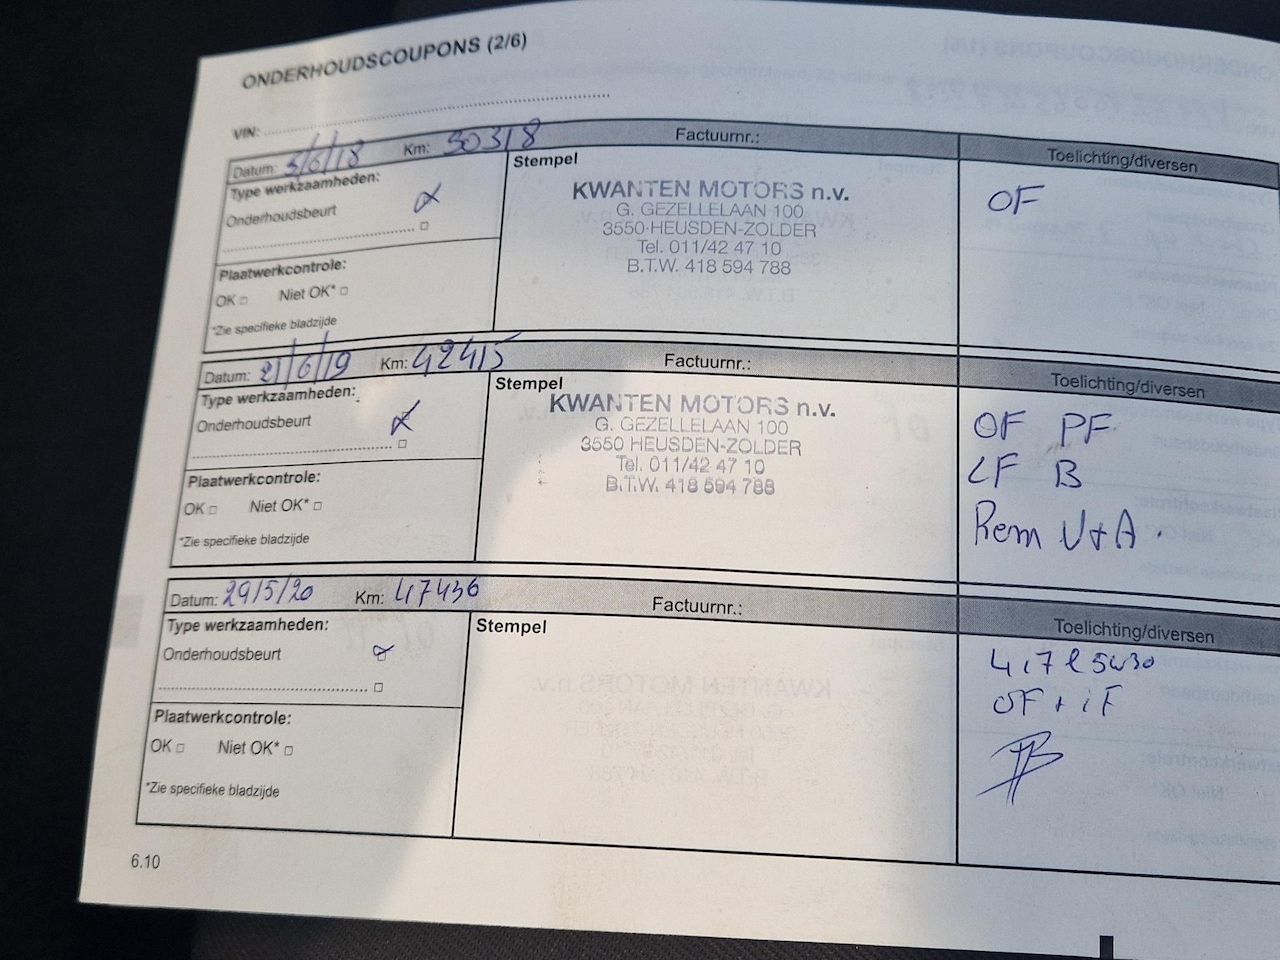 ONDERHOUDSCOUPONS (2/6)
VIN:
Datum: 5/6/18 Km: 30318 Factuurnr.: Toelichting/diversen
Type werkzaamheden:
Onderhoudsbeurt
Plaatwerkcontrole:
OK Niet OK*
*Zie specifieke bladzijde
Stempel
KWANTEN MOTORS n.v.
G. GEZELLELAAN 100
3550-HEUSDEN-ZOLDER
Tel. 011/42 47 10
B.T.W. 418 594 788
OF
Datum: 21/6/19 Km: 42415 Factuurnr.: Toelichting/diversen
Type werkzaamheden:
Onderhoudsbeurt
Plaatwerkcontrole:
OK Niet OK*
*Zie specifieke bladzijde
Stempel
KWANTEN MOTORS n.v.
G. GEZELLELAAN 100
3550 HEUSDEN-ZOLDER
Tel. 011/42 47 10
B.T.W. 418 594 788
OF PF
LF B
Rem V+A.
Datum: 29/5/20 Km: 47436 Factuurnr.: Toelichting/diversen
Type werkzaamheden:
Onderhoudsbeurt
Plaatwerkcontrole:
OK Niet OK*
*Zie specifieke bladzijde
Stempel
4,7 l 5w30
OF + iF
6.10